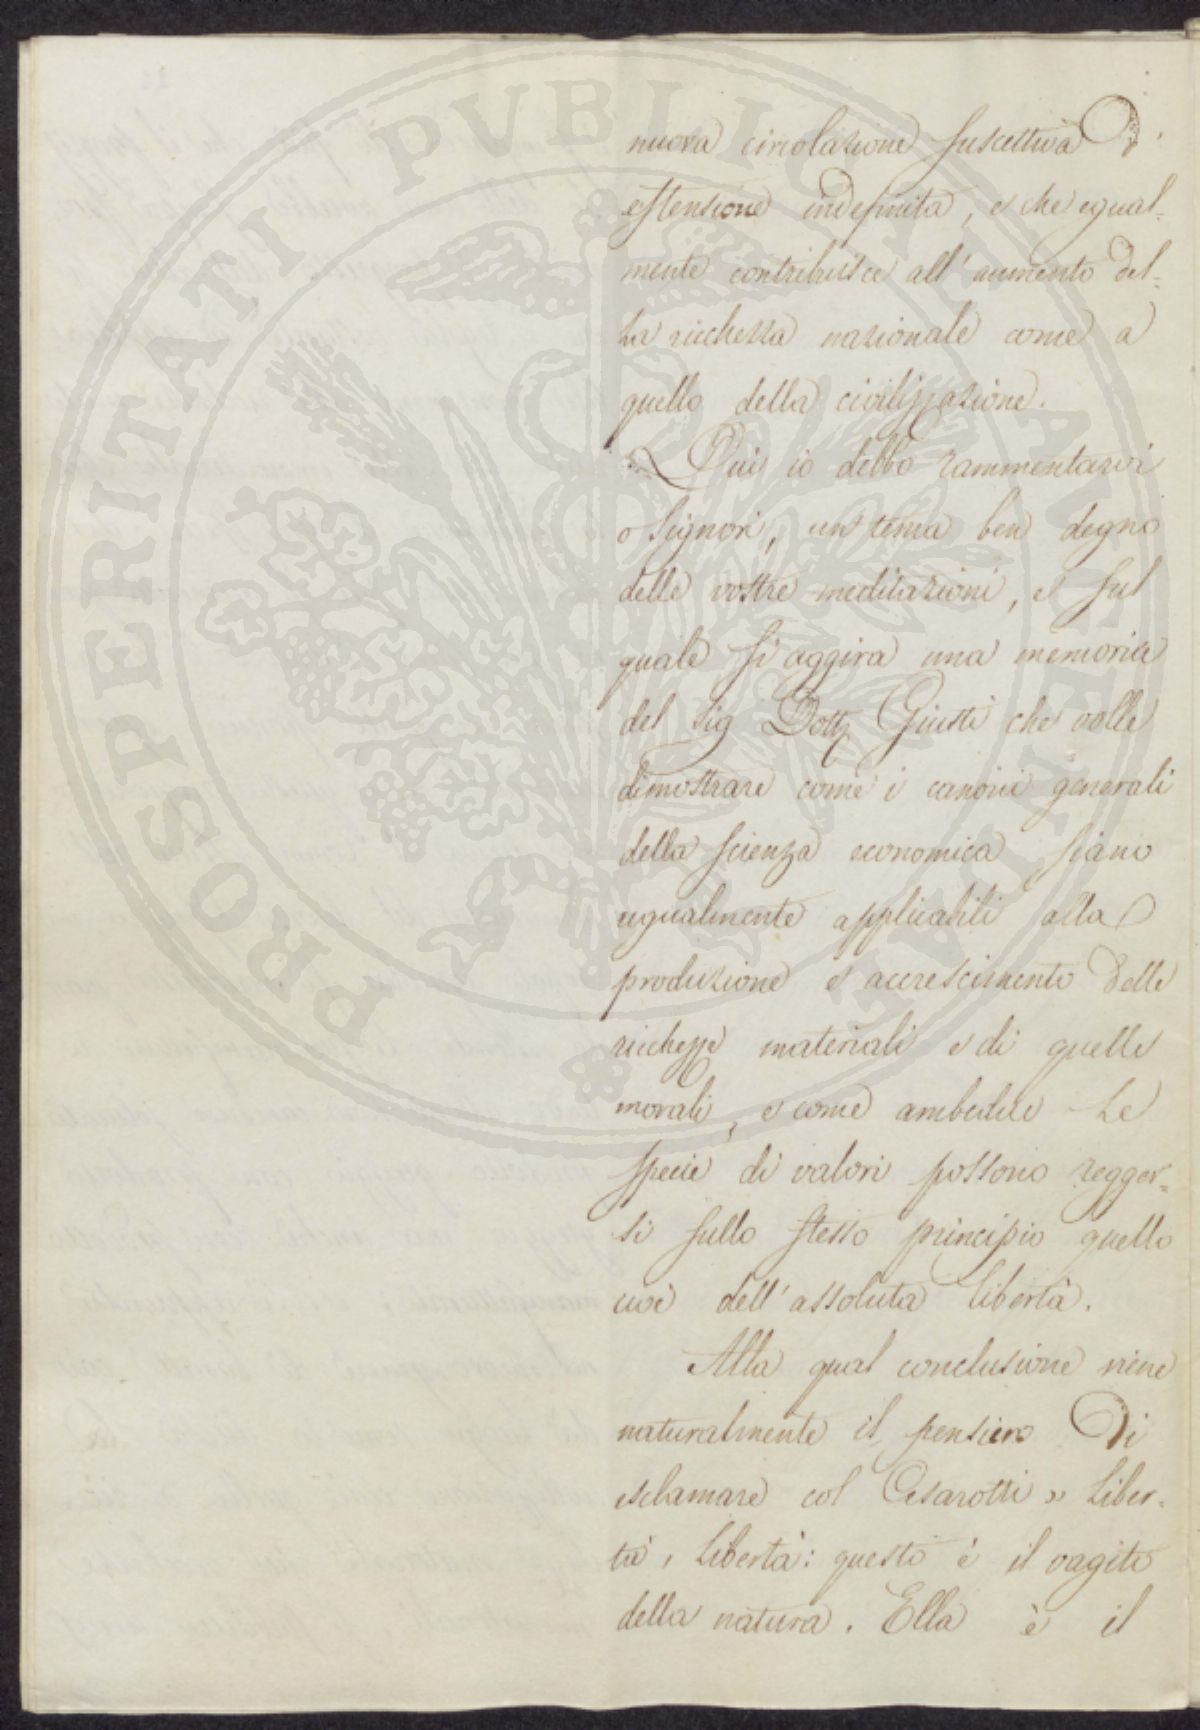 nuova circolazione suscettiva di
estensione indefinita, e che egual=
mente contribuisce all'aumento del=
la ricchezza nazionale come a
quello della civilizzazione.
Qui io debbo rammentarvi
o Signori, un tema ben degno
delle vostre meditazioni, e sul
quale si aggira una memoria
del Sig Dott. Giusti che volle
dimostrare come i canoni generali
della scienza economica siano
ugualmente applicabili alla
produzione e accrescimento delle
ricchezze materiali e di quelle
morali, e come ambedue le
specie di valori possono regger=
si sullo stesso principio quello
cioè dell'assoluta libertà.
Alla qual conclusione viene
naturalmente il pensiero di
esclamare col Cesarotti » Liber=
tà, libertà: questo è il vagito
della natura. Ella è il
PROSPERITATI PUBLICAE AUGENDAE